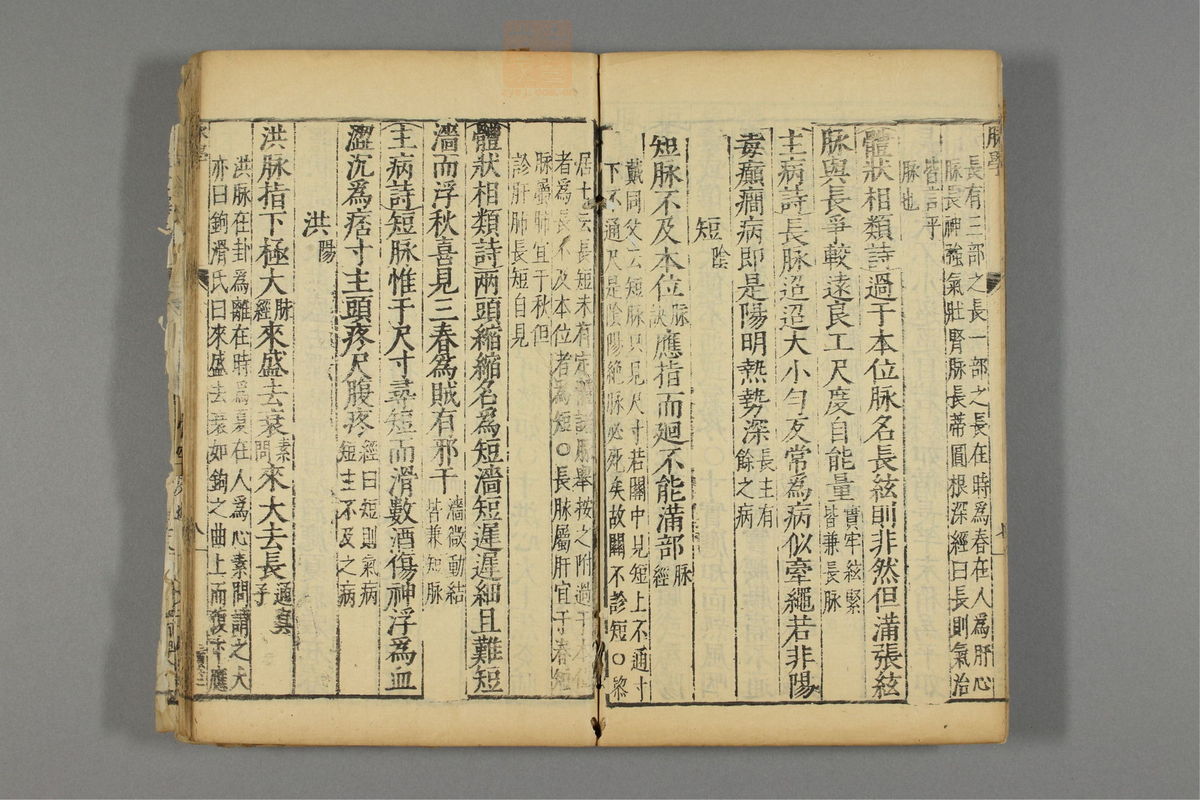 脉學
長有三部之長一部之長在時為春在人為肝心
脉長神強氣壯腎脉長蒂固根深經曰長則氣治
皆言平
脉也
體狀相類詩過于本位脉名長絃則非然但滿張絃
脉與長爭較遠良工尺度自能量實牢絃緊皆兼長脉
主病詩長脉迢迢大小勻反常為病似牽繩若非陽
毒癲癇病即是陽明熱勢深長主有餘之病
短陰
短脉不及本位脉訣應指而廻不能滿部脉經
戴同父云短脉只見尺寸若關中見短上不通寸
下不通尺是陰陽絶脉必死矣故關不診短○黎
居士云長短未有定體諸脉舉按之附過于本位
者為長不及本位者為短○長脉屬肝宜于春短
脉屬肺宜于秋但
診肝肺長短自見
體狀相類詩兩頭縮縮名為短濇短遲遲細且難短
濇而浮秋喜見三春為賊有邪干濇微動結皆兼短脉
主病詩短脉惟于尺寸尋短而滑數酒傷神浮為血
澀沉為痞寸主頭疼尺腹疼經曰短則氣病短主不及之病
洪陽
洪脉指下極大脉經來盛去衰素問來大去長通真子
洪脉在卦為離在時為夏在人為心素問謂之大
亦曰鉤滑氏曰來盛去衰如鉤之曲上而復下應